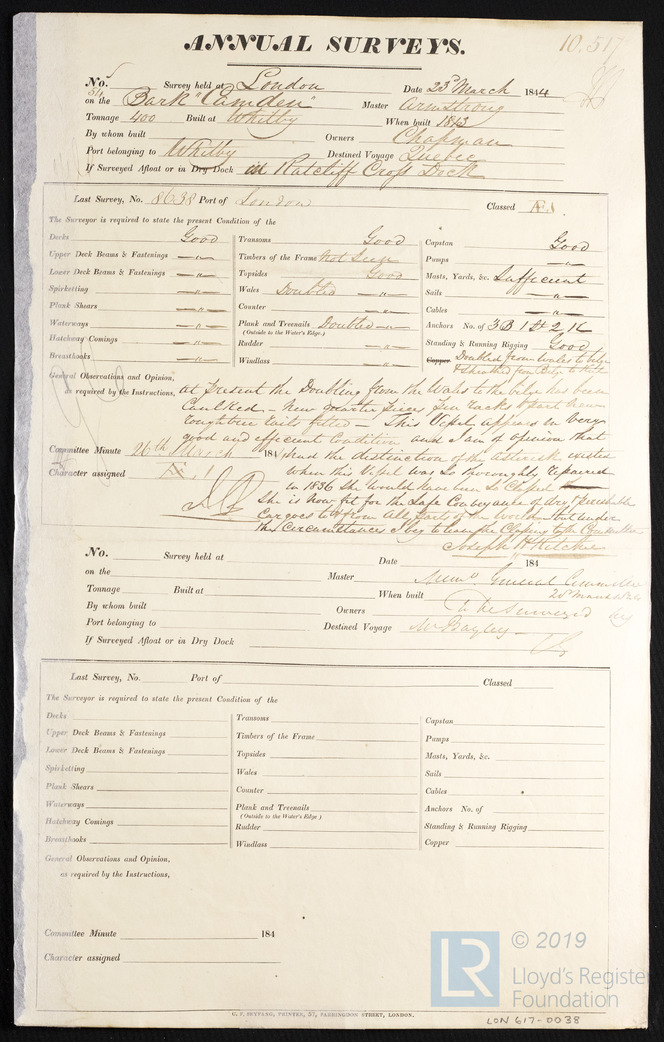 ANNUAL SURVEYS. 10.517
No. 514 Survey held at London Date 23d March 1844
on the Bark "Camden" Master Armstrong
Tonnage 400 Built at Whitby When built 1813
By whom built Owners Chapman
Port belonging to Whitby Destined Voyage Quebec
If Surveyed Afloat or in Dry Dock in Ratcliff Cross Dock
Last Survey, No. 8638 Port of London Classed Æ 1
The Surveyor is required to state the present Condition of the
Decks Good
Upper Deck Beams & Fastenings — " —
Lower Deck Beams & Fastenings — " —
Spirketting — " —
Plank Shears — " —
Waterways — " —
Hatchway Comings — " —
Breasthooks — " —
Transoms Good
Timbers of the Frame Not Seen
Topsides Good
Wales Doubled — " —
Counter — " —
Plank and Treenails Doubled — " —
(Outside to the Water's Edge)
Rudder — " —
Windlass — " —
Capstan Good
Pumps — " —
Masts, Yards, &c. Sufficient
Sails — " —
Cables — " —
Anchors No. of 3B 1 St 2 K
Standing & Running Rigging Good
Copper Doubled from Wales to bilge
& Sheathed from Bilge to Keel
General Observations and Opinion,
as required by the Instructions,
at present the Doubling from the Wales to the bilge has been
Caulked - New Quarter Pieces,
fitted - This Vessel appears in Very
good and efficient Condition and I am of opinion that
had the distinction of the Asterisk existed
when this Vessel was so thoroughly repaired
in 1836 She would have been so Classed
She is Now fit for the Safe Conveyance of dry & perishable
Cargoes to & from All Parts of the World but under
the Circumstances I beg to leave the Classing to the Committee
Joseph H Ritchie
Committee Minute 26th March 184
Character assigned Æ 1
No. Survey held at Date 184
on the Master General Committee
Tonnage Built at When built
By whom built Owners To the Surveyor
Port belonging to Destined Voyage Mr Bayley
If Surveyed Afloat or in Dry Dock
Last Survey, No. Port of Classed
The Surveyor is required to state the present Condition of the
Decks
Upper Deck Beams & Fastenings
Lower Deck Beams & Fastenings
Spirketting
Plank Shears
Waterways
Hatchway Comings
Breasthooks
Transoms
Timbers of the Frame
Topsides
Wales
Counter
Plank and Treenails
(Outside to the Water's Edge)
Rudder
Windlass
Capstan
Pumps
Masts, Yards, &c.
Sails
Cables
Anchors No. of
Standing & Running Rigging
Copper
General Observations and Opinion,
as required by the Instructions,
Committee Minute 184
Character assigned
C. F. SEYFANG, PRINTER, 57, FARRINGDON STREET, LONDON.
LR © 2019
Lloyd's Register
Foundation
LON 617-0038